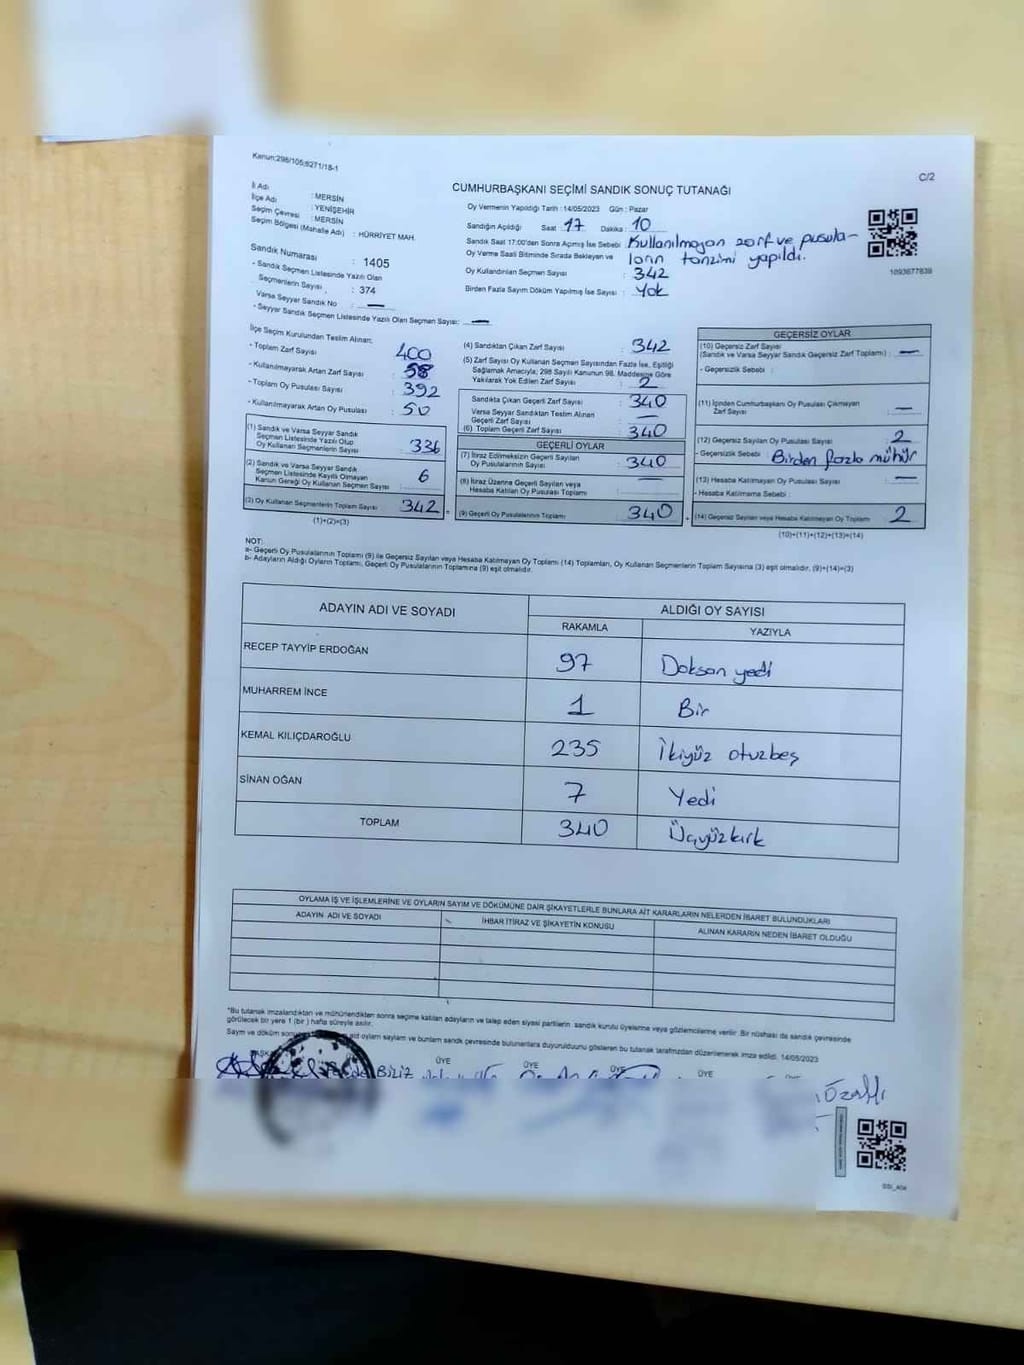 Kanun:298/105;6271/18-1
C/2
CUMHURBAŞKANI SEÇİMİ SANDIK SONUÇ TUTANAĞI
İl Adı : MERSİN
İlçe Adı : YENİŞEHİR
Seçim Çevresi : MERSİN
Seçim Bölgesi (Mahalle Adı) : HÜRRİYET MAH.
Sandık Numarası : 1405
- Sandık Seçmen Listesinde Yazılı Olan
Seçmenlerin Sayısı : 374
Varsa Seyyar Sandık No : —
- Seyyar Sandık Seçmen Listesinde Yazılı Olan Seçmen Sayısı: —
Oy Vermenin Yapıldığı Tarih : 14/05/2023 Gün : Pazar
Sandığın Açıldığı Saat 17 Dakika : 10
Sandık Saat 17:00'den Sonra Açılmış İse Sebebi : Kullanılmayan zarf ve pusula-
Oy Verme Saati Bitiminde Sırada Bekleyen ve ların tanzimi yapıldı.
Oy Kullandırılan Seçmen Sayısı : 342
Birden Fazla Sayım Döküm Yapılmış İse Sayısı : Yok
1093677839
İlçe Seçim Kurulundan Teslim Alınan;
- Toplam Zarf Sayısı : 400
- Kullanılmayarak Artan Zarf Sayısı : 58
- Toplam Oy Pusulası Sayısı : 392
- Kullanılmayarak Artan Oy Pusulası : 50
(1) Sandık ve Varsa Seyyar Sandık
Seçmen Listesinde Yazılı Olup
Oy Kullanan Seçmenlerin Sayısı : 336
(2) Sandık ve Varsa Seyyar Sandık
Seçmen Listesinde Kayıtlı Olmayan
Kanun Gereği Oy Kullanan Seçmen Sayısı : 6
(3) Oy Kullanan Seçmenlerin Toplam Sayısı : 342
(1)+(2)=(3)
(4) Sandıktan Çıkan Zarf Sayısı : 342
(5) Zarf Sayısı Oy Kullanan Seçmen Sayısından Fazla İse, Eşitliği
Sağlamak Amacıyla; 298 Sayılı Kanunun 98. Maddesine Göre
Yakılarak Yok Edilen Zarf Sayısı : 2
Sandıkta Çıkan Geçerli Zarf Sayısı : 340
Varsa Seyyar Sandıktan Teslim Alınan
Geçerli Zarf Sayısı : —
(6) Toplam Geçerli Zarf Sayısı : 340
GEÇERLİ OYLAR
(7) İtiraz Edilmeksizin Geçerli Sayılan
Oy Pusulalarının Sayısı : 340
(8) İtiraz Üzerine Geçerli Sayılan veya
Hesaba Katılan Oy Pusulası Toplamı : —
(9) Geçerli Oy Pusulalarının Toplamı : 340
GEÇERSİZ OYLAR
(10) Geçersiz Zarf Sayısı
(Sandık ve Varsa Seyyar Sandık Geçersiz Zarf Toplamı) : —
- Geçersizlik Sebebi :
(11) İçinden Cumhurbaşkanı Oy Pusulası Çıkmayan
Zarf Sayısı : —
(12) Geçersiz Sayılan Oy Pusulası Sayısı : 2
- Geçersizlik Sebebi : Birden fazla mühür
(13) Hesaba Katılmayan Oy Pusulası Sayısı : —
- Hesaba Katılmama Sebebi :
(14) Geçersiz Sayılan veya Hesaba Katılmayan Oy Toplamı : 2
(10)+(11)+(12)+(13)=(14)
NOT:
a- Geçerli Oy Pusulalarının Toplamı (9) ile Geçersiz Sayılan veya Hesaba Katılmayan Oy Toplamı (14) Toplamları, Oy Kullanan Seçmenlerin Toplam Sayısına (3) eşit olmalıdır. (9)+(14)=(3)
b- Adayların Aldığı Oyların Toplamı, Geçerli Oy Pusulalarının Toplamına (9) eşit olmalıdır.
ADAYIN ADI VE SOYADI ALDIĞI OY SAYISI
RAKAMLA YAZIYLA
RECEP TAYYİP ERDOĞAN 97 Doksan yedi
MUHARREM İNCE 1 Bir
KEMAL KILIÇDAROĞLU 235 İkiyüz otuzbeş
SİNAN OĞAN 7 Yedi
TOPLAM 340 Üçyüzkırk
OYLAMA İŞ VE İŞLEMLERİNE VE OYLARIN SAYIM VE DÖKÜMÜNE DAİR ŞİKAYETLERLE BUNLARA AİT KARARLARIN NELERDEN İBARET BULUNDUKLARI
ADAYIN ADI VE SOYADI İHBAR İTİRAZ VE ŞİKAYETİN KONUSU ALINAN KARARIN NEDEN İBARET OLDUĞU
*Bu tutanak imzalandıktan ve mühürlendikten sonra seçime katılan adayların ve talep eden siyasi partilerin sandık kurulu üyelerine veya gözlemcilerine verilir. Bir nüshası da sandık çevresinde
görülecek bir yere 1 (bir ) hafta süreyle asılır.
Sayım ve döküm ait oyların sayılan ve bunların sandık çevresinde bulunanlara duyurulduğunu gösteren bu tutanak tarafımızdan düzenlenerek imza edildi. 14/05/2023
ÜYE ÜYE ÜYE ÜYE
Özatlı